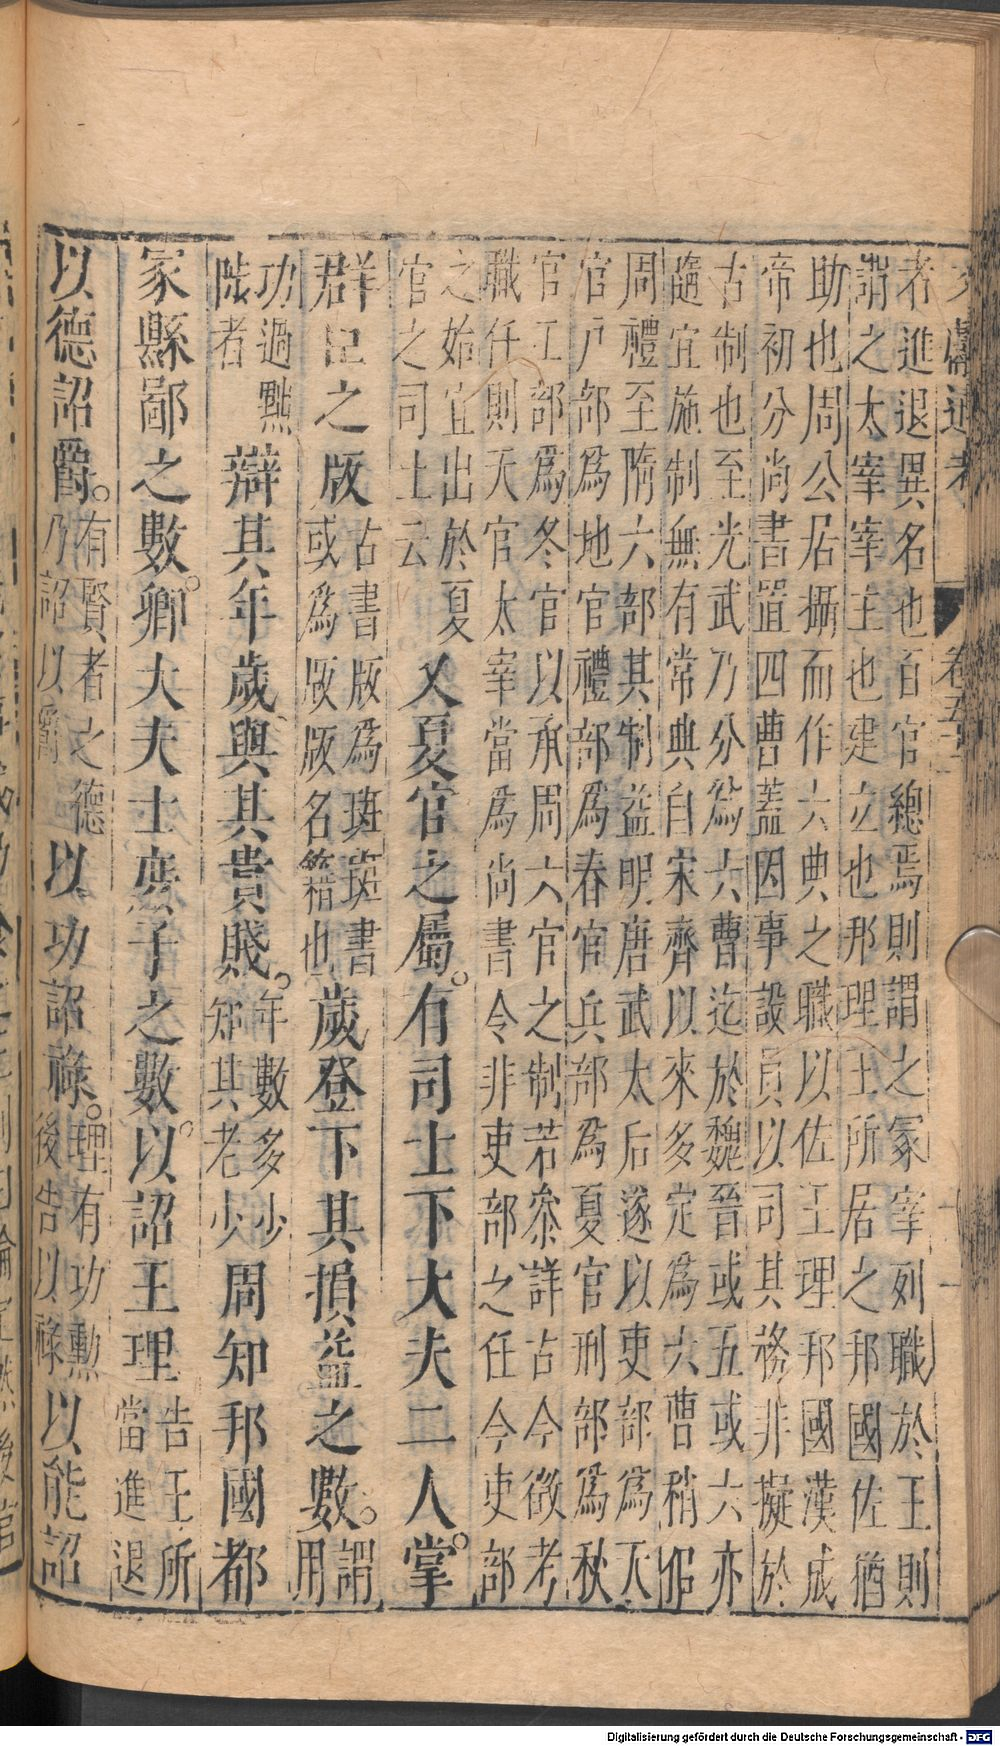 文獻通考 卷五十二
者進退異名也百官總焉則謂之冢宰列職於王則
謂之太宰宰主也建立也邦理王所居之邦國佐猶
助也周公居攝而作六典之職以佐王理邦國漢成
帝初分尚書置四曹蓋因事設員以司其務非擬於
古制也至光武乃分為六曹迄於魏晉或五或六亦
隨宜施制無有常典自宋齊以來多定為六曹稍佀
周禮至隋六部其制益明唐武太后遂以吏部為天
官户部為地官禮部為春官兵部為夏官刑部為秋
官工部為冬官以承周六官之制若叅詳古今徵考
職任則天官太宰當為尚書令非吏部之任今吏部
之始宜出於夏
官之司士云
又夏官之屬有司士下大夫二人掌
群臣之版
古書版為班班書
或為版版名籍也
歲登下其損益之數
謂
用
功過黜
陟者
辯其年歲與其貴賤
年數多少
知其老少
周知邦國都
家縣鄙之數卿大夫士庶子之數以詔王理
告王所
當進退
以德詔爵
有賢者之德
乃詔以爵
以功詔祿
理有功勲
後告以祿
以能詔
Digitalisierung gefördert durch die Deutsche Forschungsgemeinschaft - DFG